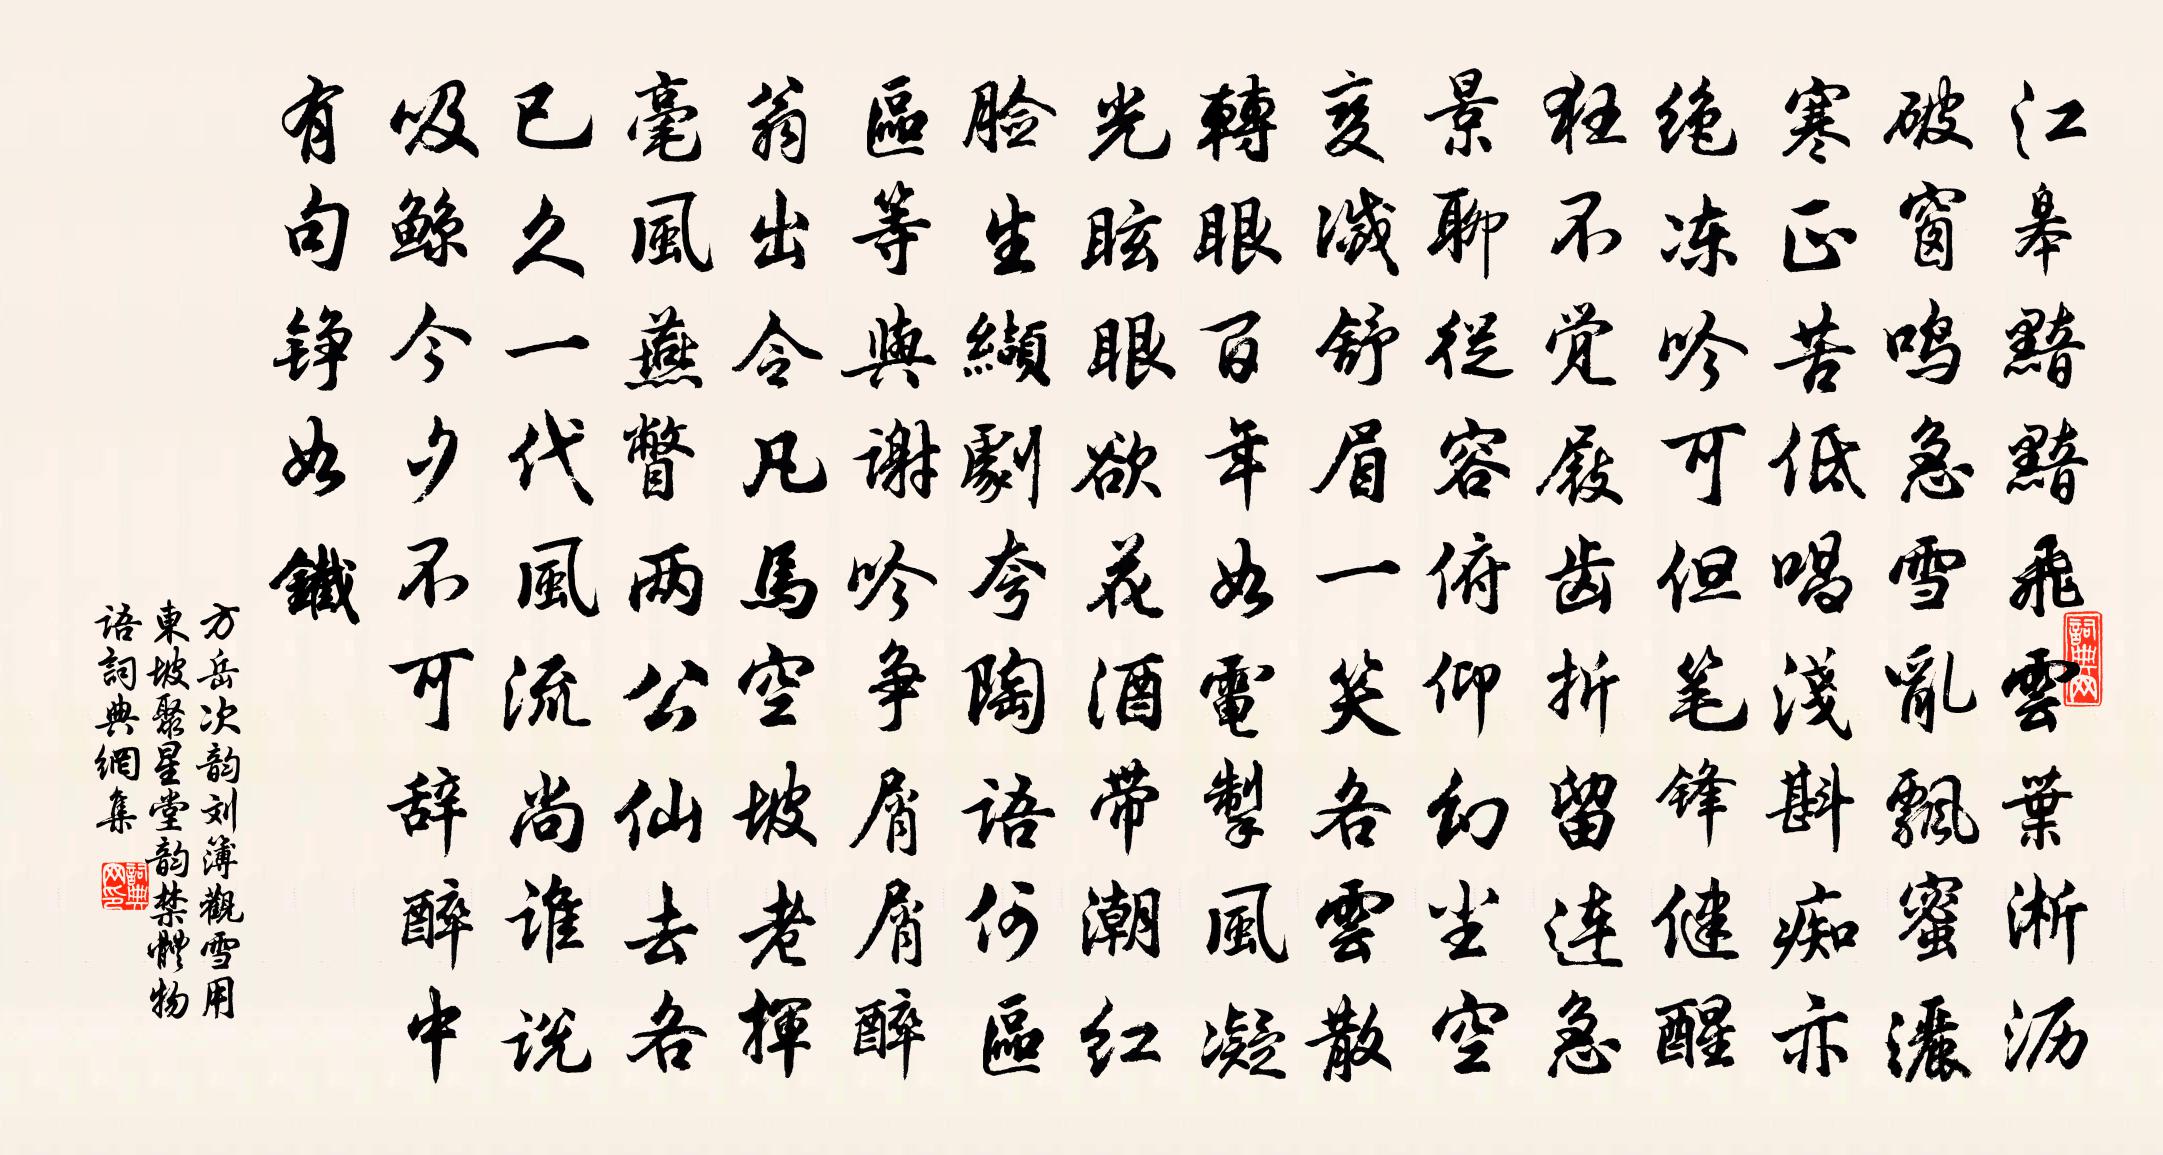 江皋黯黯飛雲葉淅沥
破窗鳴急雪亂飄蜜灑
寒正苦低唱淺斟痴亦
绝冻吟可但笔锋健醒
狂不觉屐齿折留连急
景聊從容俯仰幻尘空
变滅舒眉一笑各雲散
轉眼百年如電掣風凝
光眩眼欲花酒带潮红
脸生纈劇夸陶语何區
區等與謝吟争屑屑醉
翁出令凡馬空坡老揮
毫風燕瞥两公仙去各
已久一代風流尚谁说
吸鲸今夕不可辞醉中
有句铮如鐵
方岳次韵刘簿觀雪用
東坡聚星堂韵禁體物
语詞典網集
詞典网
詞典网印